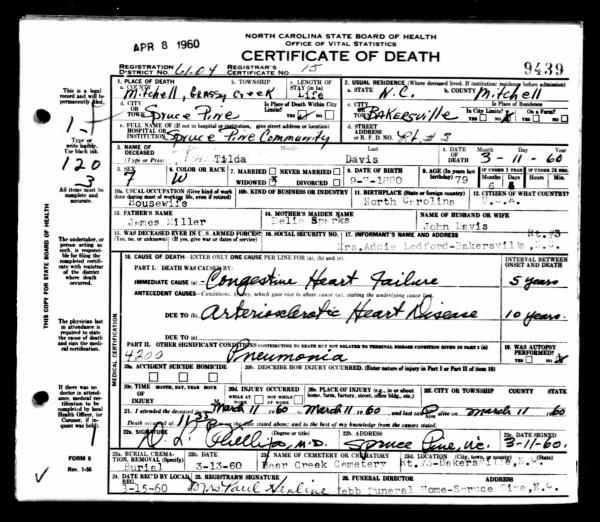 APR 8 1960
NORTH CAROLINA STATE BOARD OF HEALTH
OFFICE OF VITAL STATISTICS
CERTIFICATE OF DEATH
REGISTRATION DISTRICT NO. 61-04 REGISTRAR'S CERTIFICATE NO. 15 9439
1. PLACE OF DEATH a. COUNTY Mitchell, b. TOWNSHIP Grassy Creek c. LENGTH OF STAY (in 1a) Life
2. USUAL RESIDENCE (Where deceased lived. If institution: residence before admission) a. STATE N.C. b. COUNTY Mitchell
d. CITY OR TOWN Spruce Pine Is Place of Death Within City Limits? YES NO
c. CITY OR TOWN BAKERSVILLE Is Place of Residence In City Limits? YES NO On a Farm? YES NO
e. FULL NAME OF (If not in hospital or institution, give street address or location) HOSPITAL OR INSTITUTION Spruce Pine Community
d. STREET ADDRESS OR R. F. D. NO. Rt. #3
3. NAME OF DECEASED (Type or Print) Tilda Davis
4. DATE OF DEATH Month Day Year 3-11-60
5. SEX F 6. COLOR OR RACE W 7. MARRIED NEVER MARRIED WIDOWED X DIVORCED
8. DATE OF BIRTH 9-7-1880 9. AGE (In years last birthday) 79 IF UNDER 1 YEAR Months 6 Days IF UNDER 24 HRS. Hours Min.
10a. USUAL OCCUPATION (Give kind of work done during most of working life, even if retired) Housewife
10b. KIND OF BUSINESS OR INDUSTRY
11. BIRTHPLACE (State or foreign country) North Carolina
12. CITIZEN OF WHAT COUNTRY? U.S.A.
13. FATHER'S NAME James Miller
14. MOTHER'S MAIDEN NAME Delie Sparks
NAME OF HUSBAND OR WIFE John Davis
15. WAS DECEASED EVER IN U. S. ARMED FORCES? (Yes, no, or unknown) (If yes, give war or dates of service)
16. SOCIAL SECURITY NO.
17. INFORMANT'S NAME AND ADDRESS Rt.#3 Mrs.Addie Ledford-Bakersville,N.C.
18. CAUSE OF DEATH—ENTER ONLY ONE CAUSE PER LINE FOR (a), (b) and (c). INTERVAL BETWEEN ONSET AND DEATH
PART I. DEATH WAS CAUSED BY:
IMMEDIATE CAUSE (a) Congestive Heart Failure 5 years
ANTECEDENT CAUSES—Conditions, if any, which gave rise to above cause (a), stating the underlying cause last.
DUE TO (b) Arteriosclerotic Heart Disease 10 years.
DUE TO (c)
PART II. OTHER SIGNIFICANT CONDITIONS CONTRIBUTING TO DEATH BUT NOT RELATED TO TERMINAL DISEASE CONDITION GIVEN IN PART I (a)
4200 Pneumonia
19. WAS AUTOPSY PERFORMED? YES NO
20a. ACCIDENT SUICIDE HOMICIDE
20b. DESCRIBE HOW INJURY OCCURRED. (Enter nature of injury in Part I or Part II of item 18)
20c. TIME OF INJURY MONTH, DAY, YEAR HOUR
20d. INJURY OCCURRED WHILE AT WORK NOT WHILE AT WORK
20e. PLACE OF INJURY (e.g., in or about home, farm, factory, street, office bldg., etc.)
20f. CITY OR TOWNSHIP COUNTY STATE
21. I attended the deceased from March 11, 1960 to March 11, 1960, and last saw alive on March 11, 60
Death occurred at m. on the date stated above; and to the best of my knowledge from the causes stated.
22a. SIGNATURE (Degree or title) D. L. Phillips, M.D.
22b. ADDRESS Spruce Pine, N.C.
22c. DATE SIGNED 3-11-60.
23a. BURIAL, CREMATION, REMOVAL (Specify) Burial
23b. DATE 3-13-60
23c. NAME OF CEMETERY OR CREMATORY Bear Creek Cemetery
Rt.#3-Bakersville,N.C.
24. DATE REC'D BY LOCAL REG. 3-15-60
25. REGISTRAR'S SIGNATURE Mrs Paul
26. FUNERAL DIRECTOR ADDRESS Webb Funeral Home-Spruce Pine,N.C.
This is a legal record and will be permanently filed.
Type or write legibly. Use black ink.
120
-3
All items must be complete and accurate.
The undertaker, or person acting as such, is responsible for filing the completed certificate with registrar of the district where death occurred.
The physician last in attendance is required to state the cause of death and sign the medical certification.
If there was no doctor in attendance, medical certification to be completed by local Health Officer, or Coroner, if inquest was held.
FORM 8
Rev. 1-56
THIS COPY FOR STATE BOARD OF HEALTH
MEDICAL CERTIFICATION